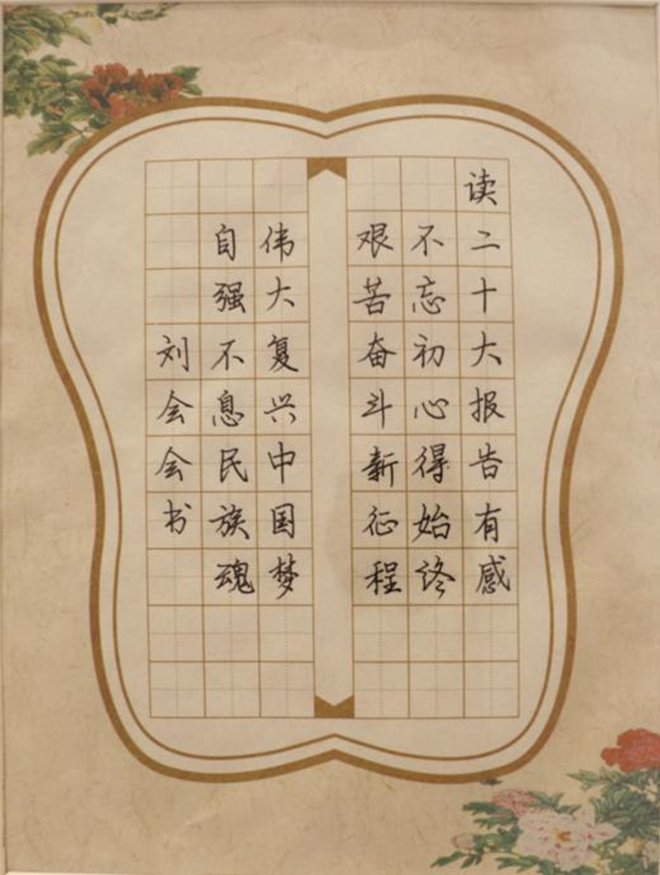 读二十大报告有感
不忘初心得始终
艰苦奋斗新征程
伟大复兴中国梦
自强不息民族魂
刘会会书